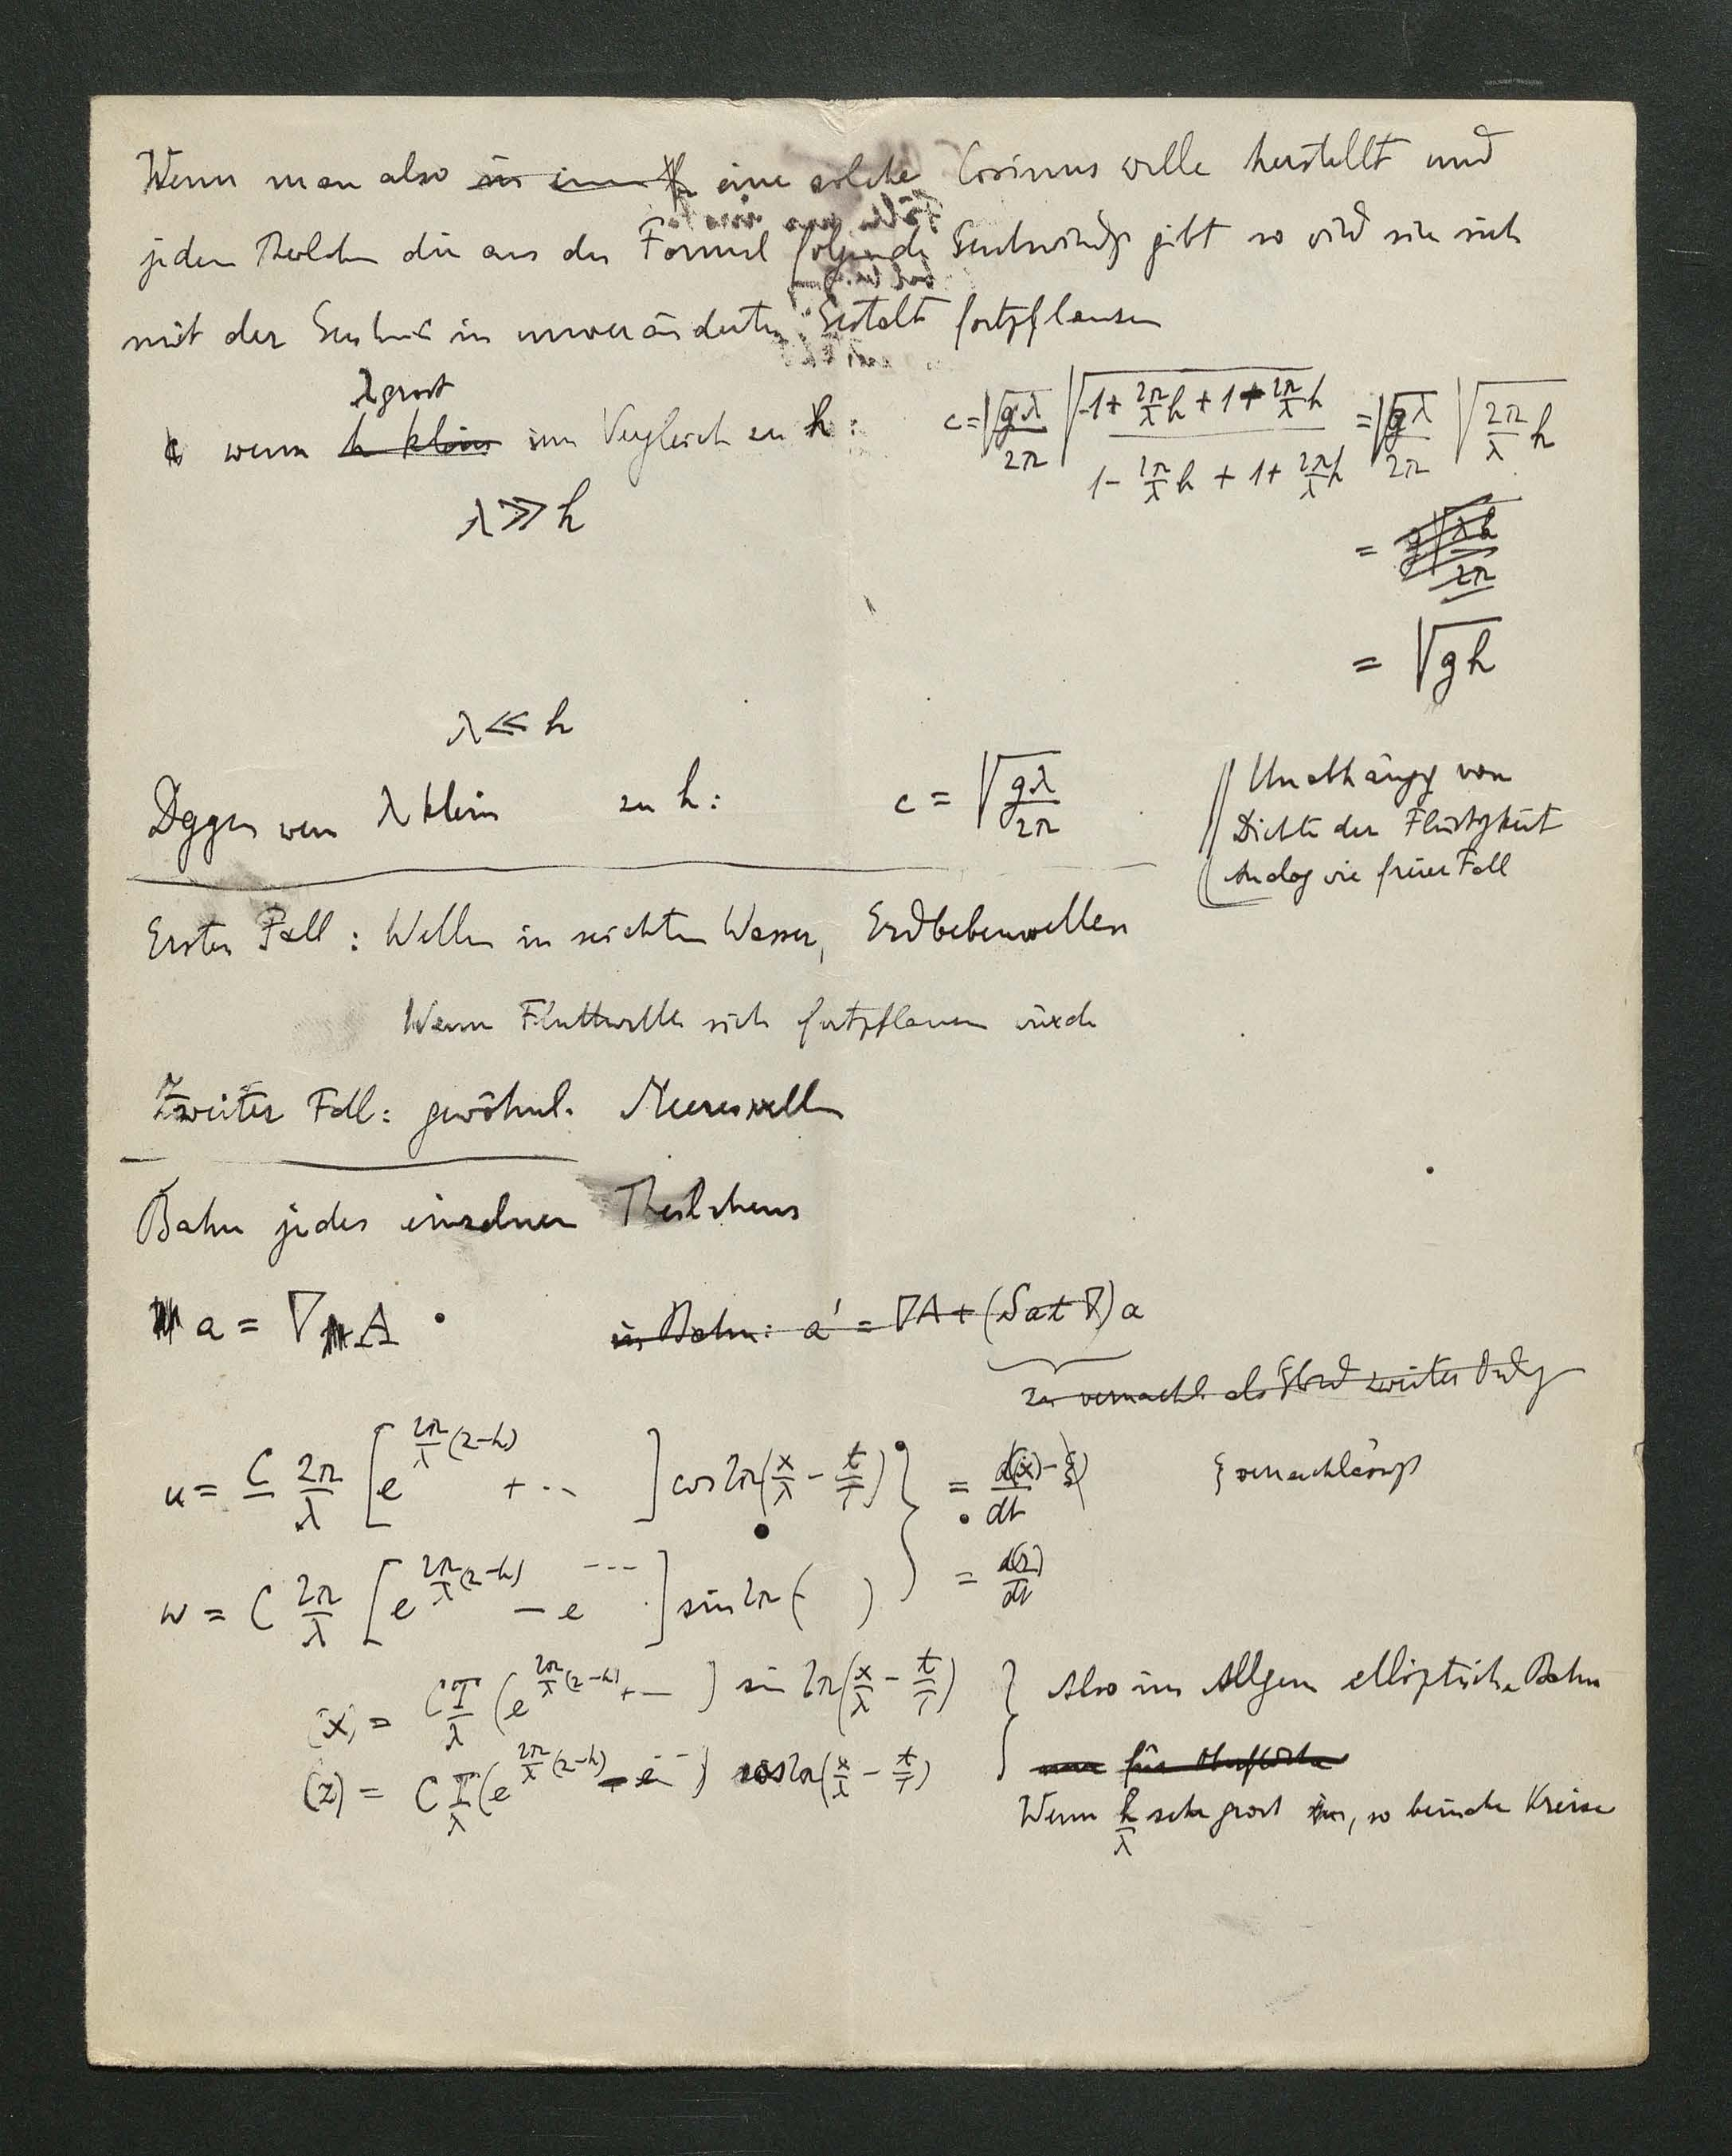 Wenn man also eine solche Cosinus welle herstellt und
jedem Theilchen die aus der Formel folgende Geschwindgk gibt so wird sie sich
mit der Geschw c in unveränderter Gestalt fortpflanzen
λ gross
wenn h klein im Vergleich zu h: c = √(gλ/2π) √((-1 + 2π/λ h + 1 + 2π/λ h)/(1 - 2π/λ h + 1 + 2π/λ h)) = √(gλ/2π) √(2π/λ h)
λ ≫ h
= g √(λh/2π)
= √gh
λ ≪ h
Dggen wenn λ klein zu h: c = √(gλ/2π)
Unabhängg von
Dichte der Flüssigkeit
Analog wie freier Fall
Erster Fall: Wellen in seichtem Wasser, Erdbebenwellen
Wenn Fluthwelle sich fortpflanzen würde
Zweiter Fall: gewöhnl. Meereswellen
Bahn jedes einzelnen Theilchens
a = ∇ A
in Bahn: a' = ∇A + (∫a dt ∇) a
zu vernachl. als Glied zweiter Ordg
u = C 2π/λ [e^(2π/λ (z-h)) + ..] cos 2π(x/λ - t/T) } = d(x)/dt vernachlässgt
w = C 2π/λ [e^(2π/λ (z-h)) - e ---] sin 2π ( ) = d(z)/dt
(x) = CT/λ (e^(2π/λ (z-h)) + -) sin 2π(x/λ - t/T) } Also im Allgem elliptische Bahn
(z) = CT/λ (e^(2π/λ (z-h)) - e^-) cos 2π(x/λ - t/T) für Oberfläche
Wenn h/λ sehr gross, so beinahe Kreise